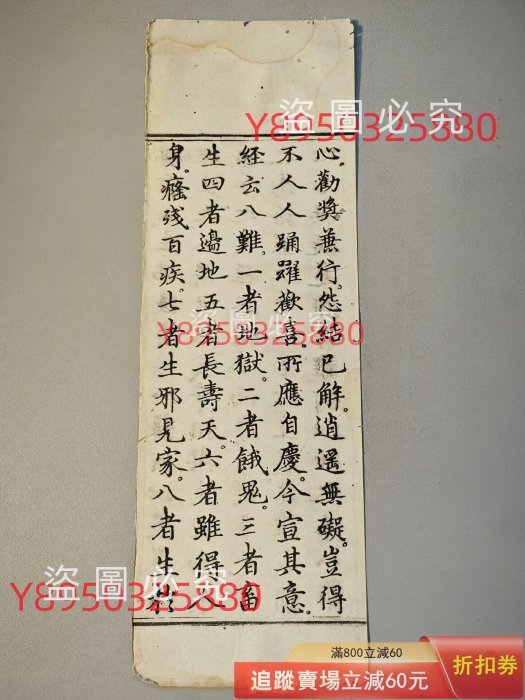 心。勸奬兼行。怨結已解。逍遥無礙。豈得
不人人踊躍歡喜。所應自慶。今宣其意。
經云八難。一者地獄。二者餓鬼。三者畜
生四者邊地五者長壽天。六者雖得人
身。癃残百疾。七者生邪見家。八者生
盜圖必究
Y8950325880
盜圖必究
Y8950325880
盜圖必究
Y8950325880
滿800立減60
追蹤賣場立減60元
折扣券